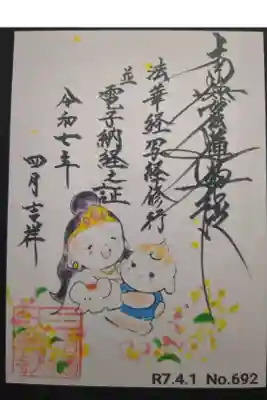 南無妙法蓮華経
法華経写経修行
並電子納経之証
令和七年
四月吉祥
R7.4.1 No.692